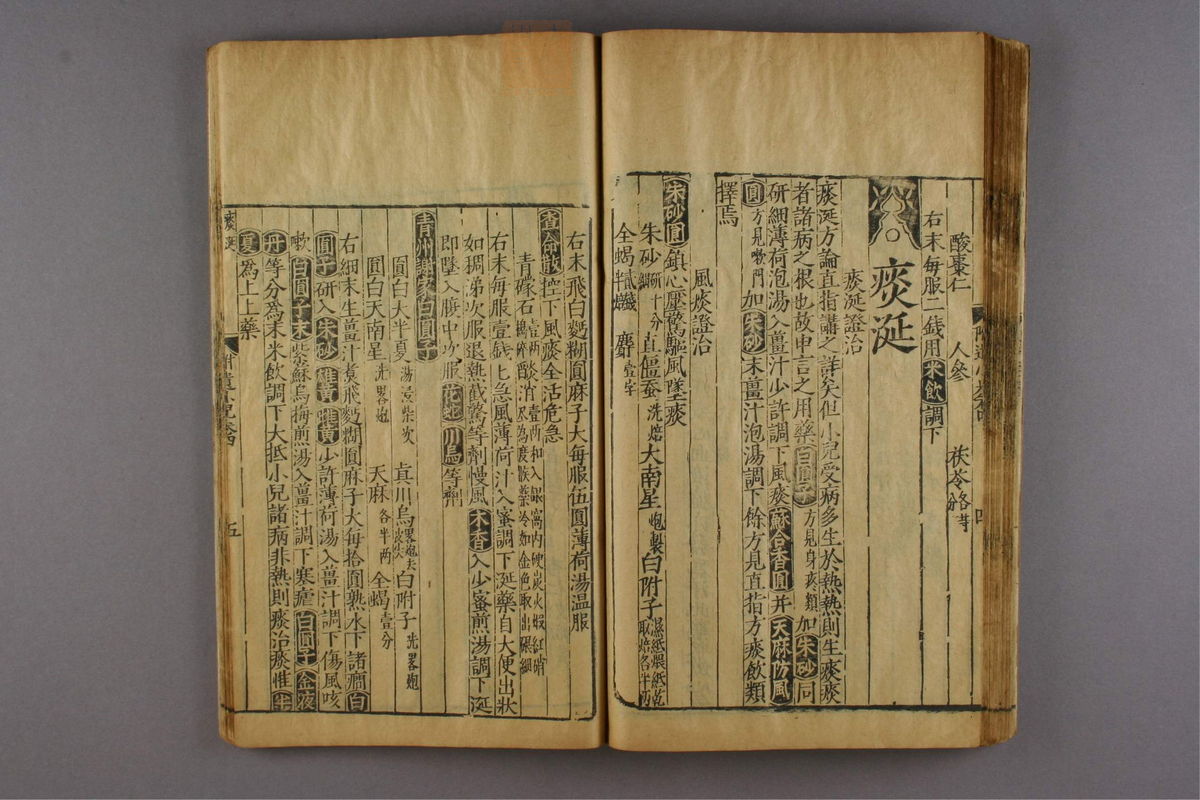 酸棗仁　人參　茯苓各
右末每服二錢用米飲調下
痰涎
痰涎證治
痰涎方論直指講之詳矣但小兒受病多生於熱熱則生痰痰
者諸病之根也故申言之用藥白圓子方見身疼類加朱砂同
研細薄荷泡湯入薑汁少許調下風痰蘇合香圓并天麻防風
圓方見嗽門加朱砂末薑汁泡湯調下餘方見直指方痰飲類
擇焉
風痰證治
朱砂圓鎮心壓驚驅風墜痰
朱砂研細十分直僵蚕洗焙大南星炮製白附子濕紙煨紙乾取焙各半兩
全蝎　麝壹字
右末飛白麪糊圓麻子大每服伍圓薄荷湯温服
奪命散控下風痰全活危急
青礞石壹兩搗碎 焰消壹兩和入鍋窩内硬炭火煅紅硝盡為度候藥冷如金色取出碾細
右末每服壹錢匕急風薄荷汁入蜜調下涎藥自大便出狀
如稠涕次服退熱截驚等劑慢風木香入少蜜煎湯調下涎
即墜入腹中次服花蛇川烏等劑
青州謝家白圓子
圓白大半夏湯浸柒次　真川烏畧炮去皮尖白附子洗畧炮
圓白天南星洗畧炮　天麻各半两　全蝎壹分
右細末生薑汁煮飛麪糊圓麻子大每拾圓熟水下諸癇白
圓子研入朱砂雄黃少許薄荷湯入薑汁調下傷風咳
嗽白圓子末紫蘇烏梅煎湯入薑汁調下寒瘧白圓子金液
丹等分為末米飲調下大抵小兒諸病非熱則痰治痰惟半
夏為上上藥
痰涎
五